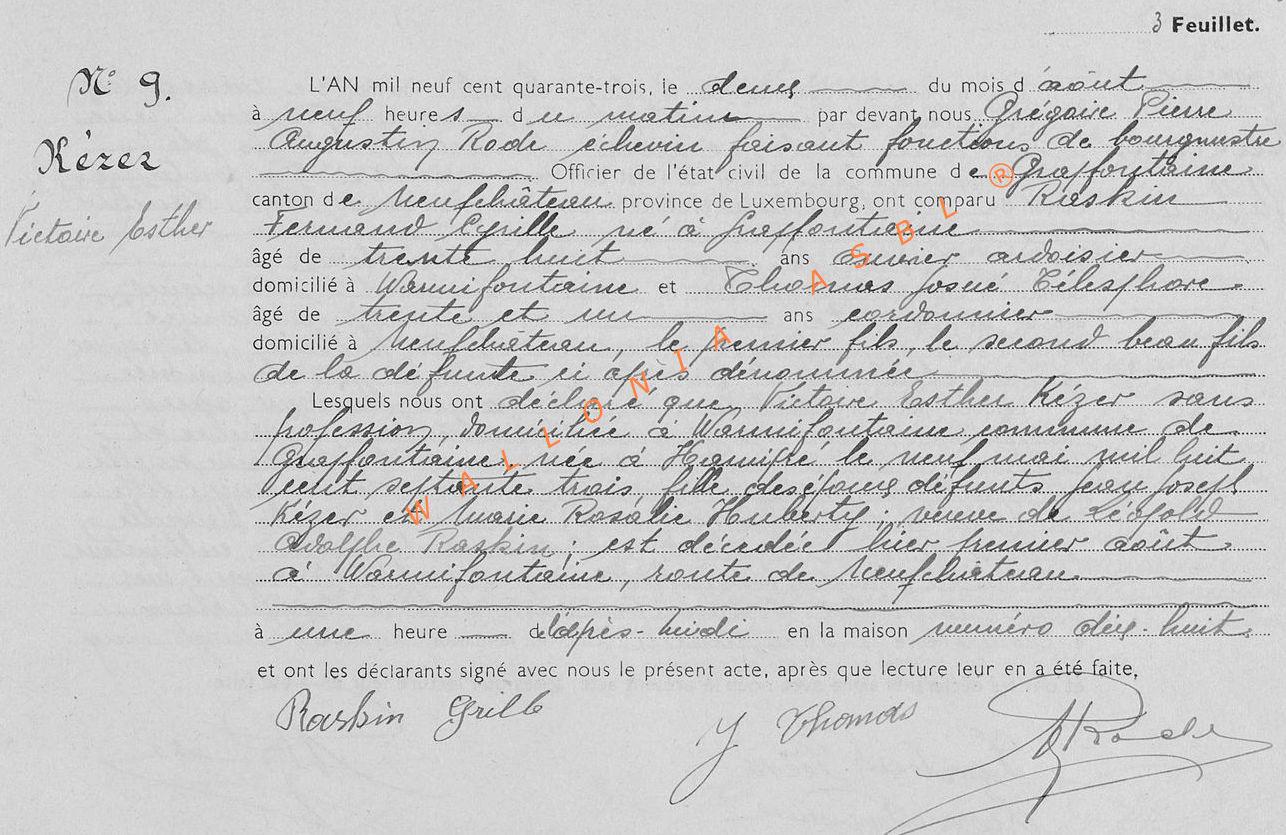 3 Feuillet.
N° 9.
Kézer
Victoire Esther
L'AN mil neuf cent quarante-trois, le deux du mois d'août
à neuf heures du matin par devant nous Grégoire Pierre
Augustin Rode échevin faisant fonctions de bourgmestre
Officier de l'état civil de la commune de ® Grapfontaine
canton de Neufchâteau province de Luxembourg, ont comparu Raskin
Fernand Cyrille né à Grapfontaine
âgé de trente huit ans ouvrier ardoisier
domicilié à Warmifontaine et Thomas Josué Télesphore
âgé de trente et un ans cordonnier
domicilié à Neufchâteau, le premier fils, le second beau fils
de la défunte ci après dénommée
Lesquels nous ont déclaré que Victoire Esther Kézer sans
profession, domiciliée à Warmifontaine commune de
Grapfontaine, née à Hamipré le neuf mai mil huit
cent septante trois, fille des époux défunts Jean Joseph
Kézer et Marie Rosalie Huberty ; veuve de Léopold
Adolphe Raskin ; est décédée hier premier août
à Warmifontaine, route de Neufchâteau
à une heure de l'après-midi en la maison numéro dix-huit
et ont les déclarants signé avec nous le présent acte, après que lecture leur en a été faite,
Raskin Cyrille
J Thomas
Rode
WALLONIA ASBL